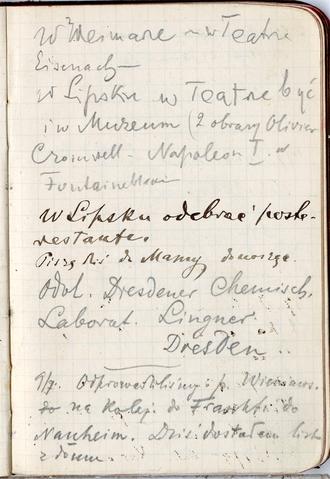 W Weimarze – w Teatrze
Eisenach –
W Lipsku w Teatrze być
i w Muzeum (2 obrazy Olivier
Cromwell - Napoleon I. w
Fontainebleau
W Lipsku odebrać poste-
restante.
Piszę dziś do Mamy donosząc.
Odol. Dresdener Chemisch.
Laborat. Lingner
Dresden..
9/7. Odprowadziliśmy p.
na kolej do Frankf. i do
Nauheim. Dziś dostałem list
z domu.